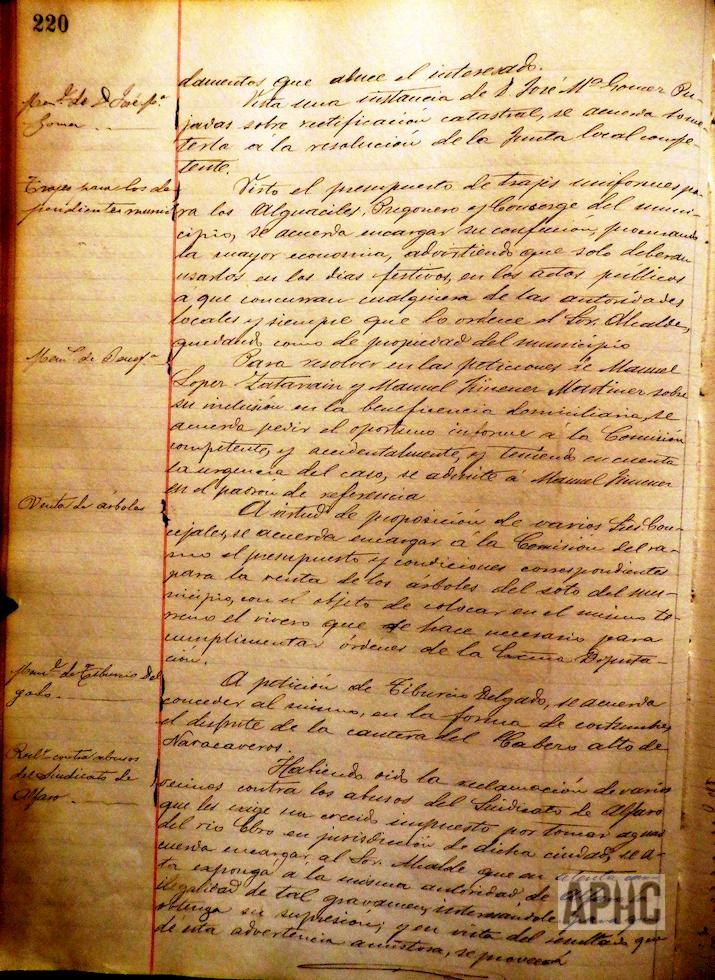 220
damentos que aduce el interesado.
Men.l de D. José M.a
Gomez
Vista una instancia de D. José M.a Gomez Pu-
jadas sobre rectificación catastral, se acuerda some-
terla a la resolución de la Junta local compe-
tente.
Trajes para los de-
pendientes munic
Visto el presupuesto de trajes uniformes pa-
ra los Alguaciles, Pregonero y Conserge del muni-
cipio, se acuerda encargar su confección, procurando
la mayor economia, advirtiendo que solo deberan
usarlos en los dias festivos, en los actos publicos
a que concurran cualquiera de las autoridades
locales y siempre que lo ordene el Sor. Alcalde,
quedando como de propiedad del municipio
Men.l de Benef.a
Para resolver en las peticiones de Manuel
Lopez Zatarain y Manuel Jimenez Martinez sobre
su inclusión en la beneficencia domiciliaria, se
acuerda pedir el oportuno informe á la Comisión
competente, y accidentalmente, y teniendo en cuenta
la urgencia del caso, se admite á Manuel Jimenez
en el padrón de referencia
Venta de árboles
A virtud de proposición de varios Sres Con-
cejales, se acuerda encargar á la Comision del ra-
mo el presupuesto y condiciones correspondientes
para la venta de los árboles del soto del mu-
nicipio, con el objeto de colocar en el mismo te-
rreno el vivero que se hace necesario para
cumplimentar órdenes de la Excma Diputa-
ción.
Men.l de Tiburcio Del
gado
A petición de Tiburcio Delgado, se acuerda
conceder al mismo, en la forma de costumbre,
el disfrute de la cantera del Cabezo alto de
Naracaveros.
Recl.n contra abusos
del Sindicato de
Alfaro
Habiendo oido la reclamación de varios
vecinos contra los abusos del Sindicato de Alfaro
que les exige un crecido impuesto por tomar aguas
del rio Ebro en jurisdicción de dicha ciudad, se a-
cuerda encargar al Sor. Alcalde que en atenta car-
ta exponga a la misma autoridad, de
ilegalidad de tal gravamen, interesandole
obtenga su supresión; y en vista del resultado que
de esta advertencia amistosa, se proveerá
APHC